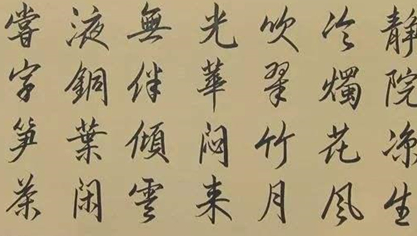 靜院涼生
冷燭花風
吹翠竹月
光華悶來
無伴傾雲
液銅葉閑
嘗字笋茶